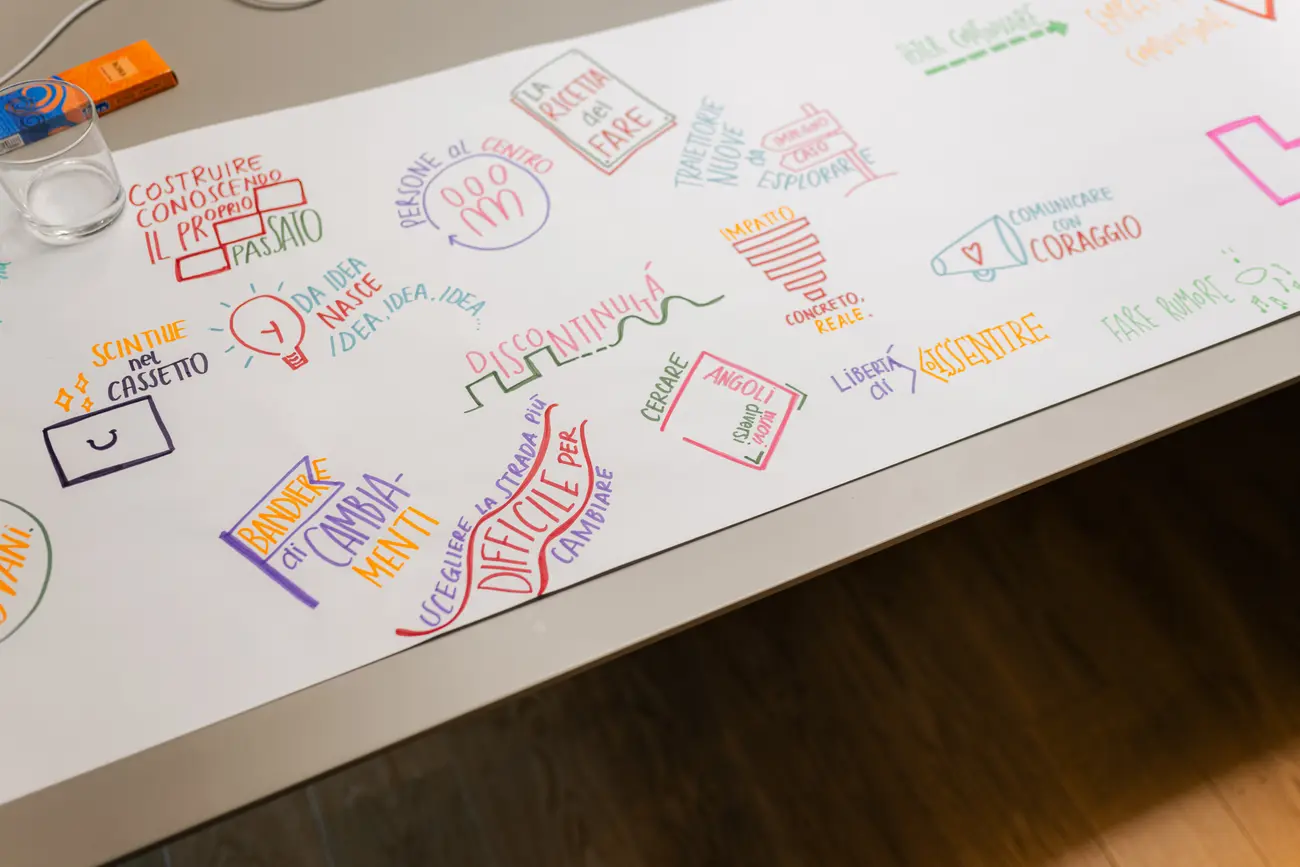 COSTRUIRE
CONOSCENDO
IL PROPRIO
PASSATO
PERSONE al CENTRO
LA
RICETTA
del
FARE
TRAIETTORIE
NUOVE
da
ESPLORARE
IMPEGNO
CASO
DA IDEA
NASCE
IDEA, IDEA, IDEA...
SCINTILLE
nel
CASSETTO
DISCONTINUITÁ
IMPATTO
CONCRETO,
REALE.
COMUNICARE
CON
CORAGGIO
FARE RUMORE
LIBERTÁ
di
DISSENTIRE
CERCARE
ANGOLI
nuovi
diversi
BANDIERE
di CAMBIA-
MENTI
SCEGLIERE LA STRADA PIÙ
DIFFICILE PER
CAMBIARE